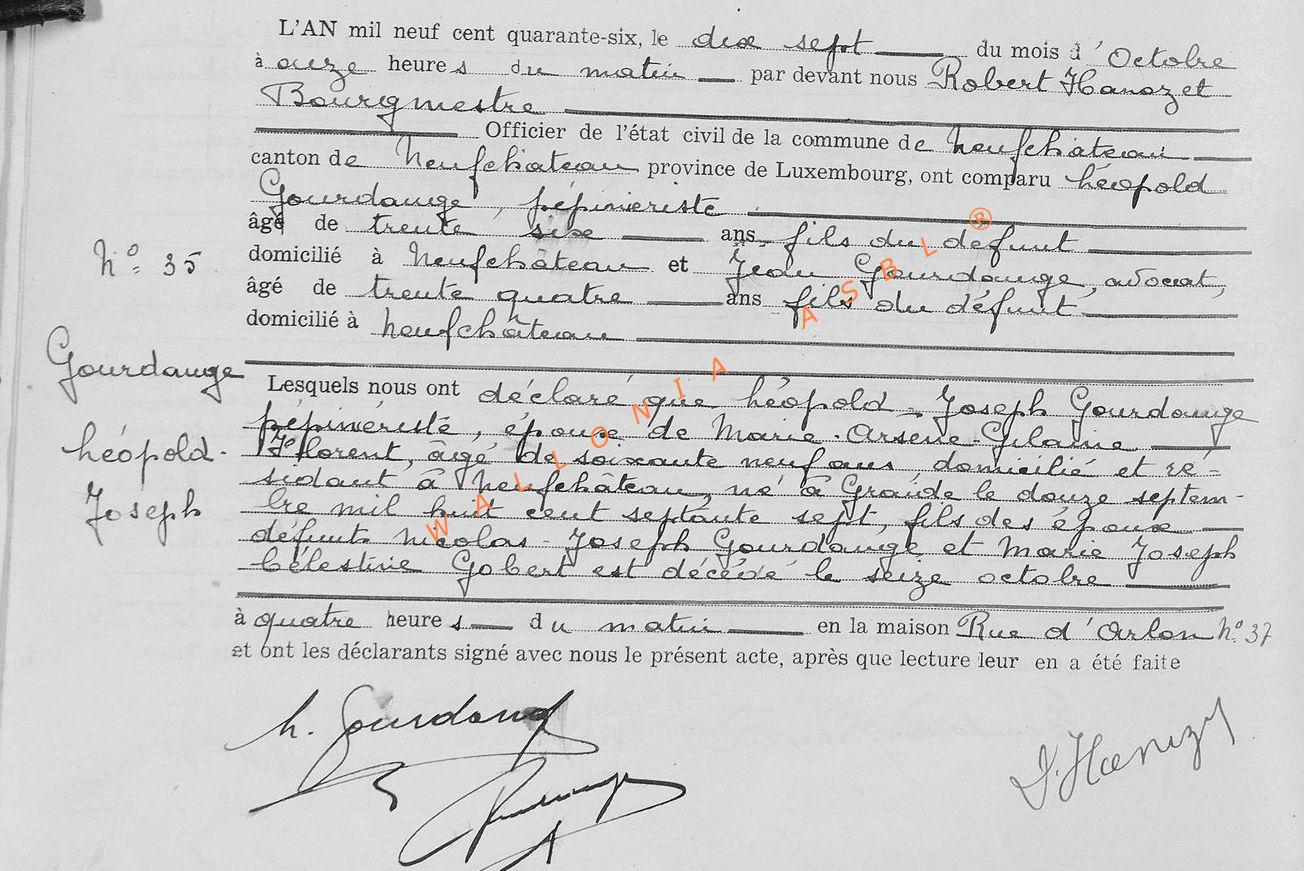 L'AN mil neuf cent quarante-six, le dix sept du mois d'Octobre
à onze heures du matin par devant nous Robert Hanozet
Bourgmestre
Officier de l'état civil de la commune de Neufchâteau
canton de Neufchâteau province de Luxembourg, ont comparu Léopold
Gourdange, pépiniériste
âgé de trente six ans, fils du défunt
domicilié à Neufchâteau et Jean Gourdange, avocat,
N° 35
âgé de trente quatre ans fils du défunt
domicilié à Neufchâteau
Gourdange
Léopold-
Joseph
Lesquels nous ont déclaré que Léopold-Joseph Gourdange
pépiniériste, époux de Marie-Arsène-Gilaine
Florent, âgé de soixante neuf ans, domicilié et ré-
sidant à Neufchateau, né à Graide le douze septem-
bre mil huit cent septante sept, fils des époux
défunts Nicolas-Joseph Gourdange et Marie Joseph
Célestine Gobert est décédé le seize octobre
à quatre heures du matin en la maison Rue d'Arlon N° 37
et ont les déclarants signé avec nous le présent acte, après que lecture leur en a été faite
L. Gourdange
WALLONIA ASBL ®